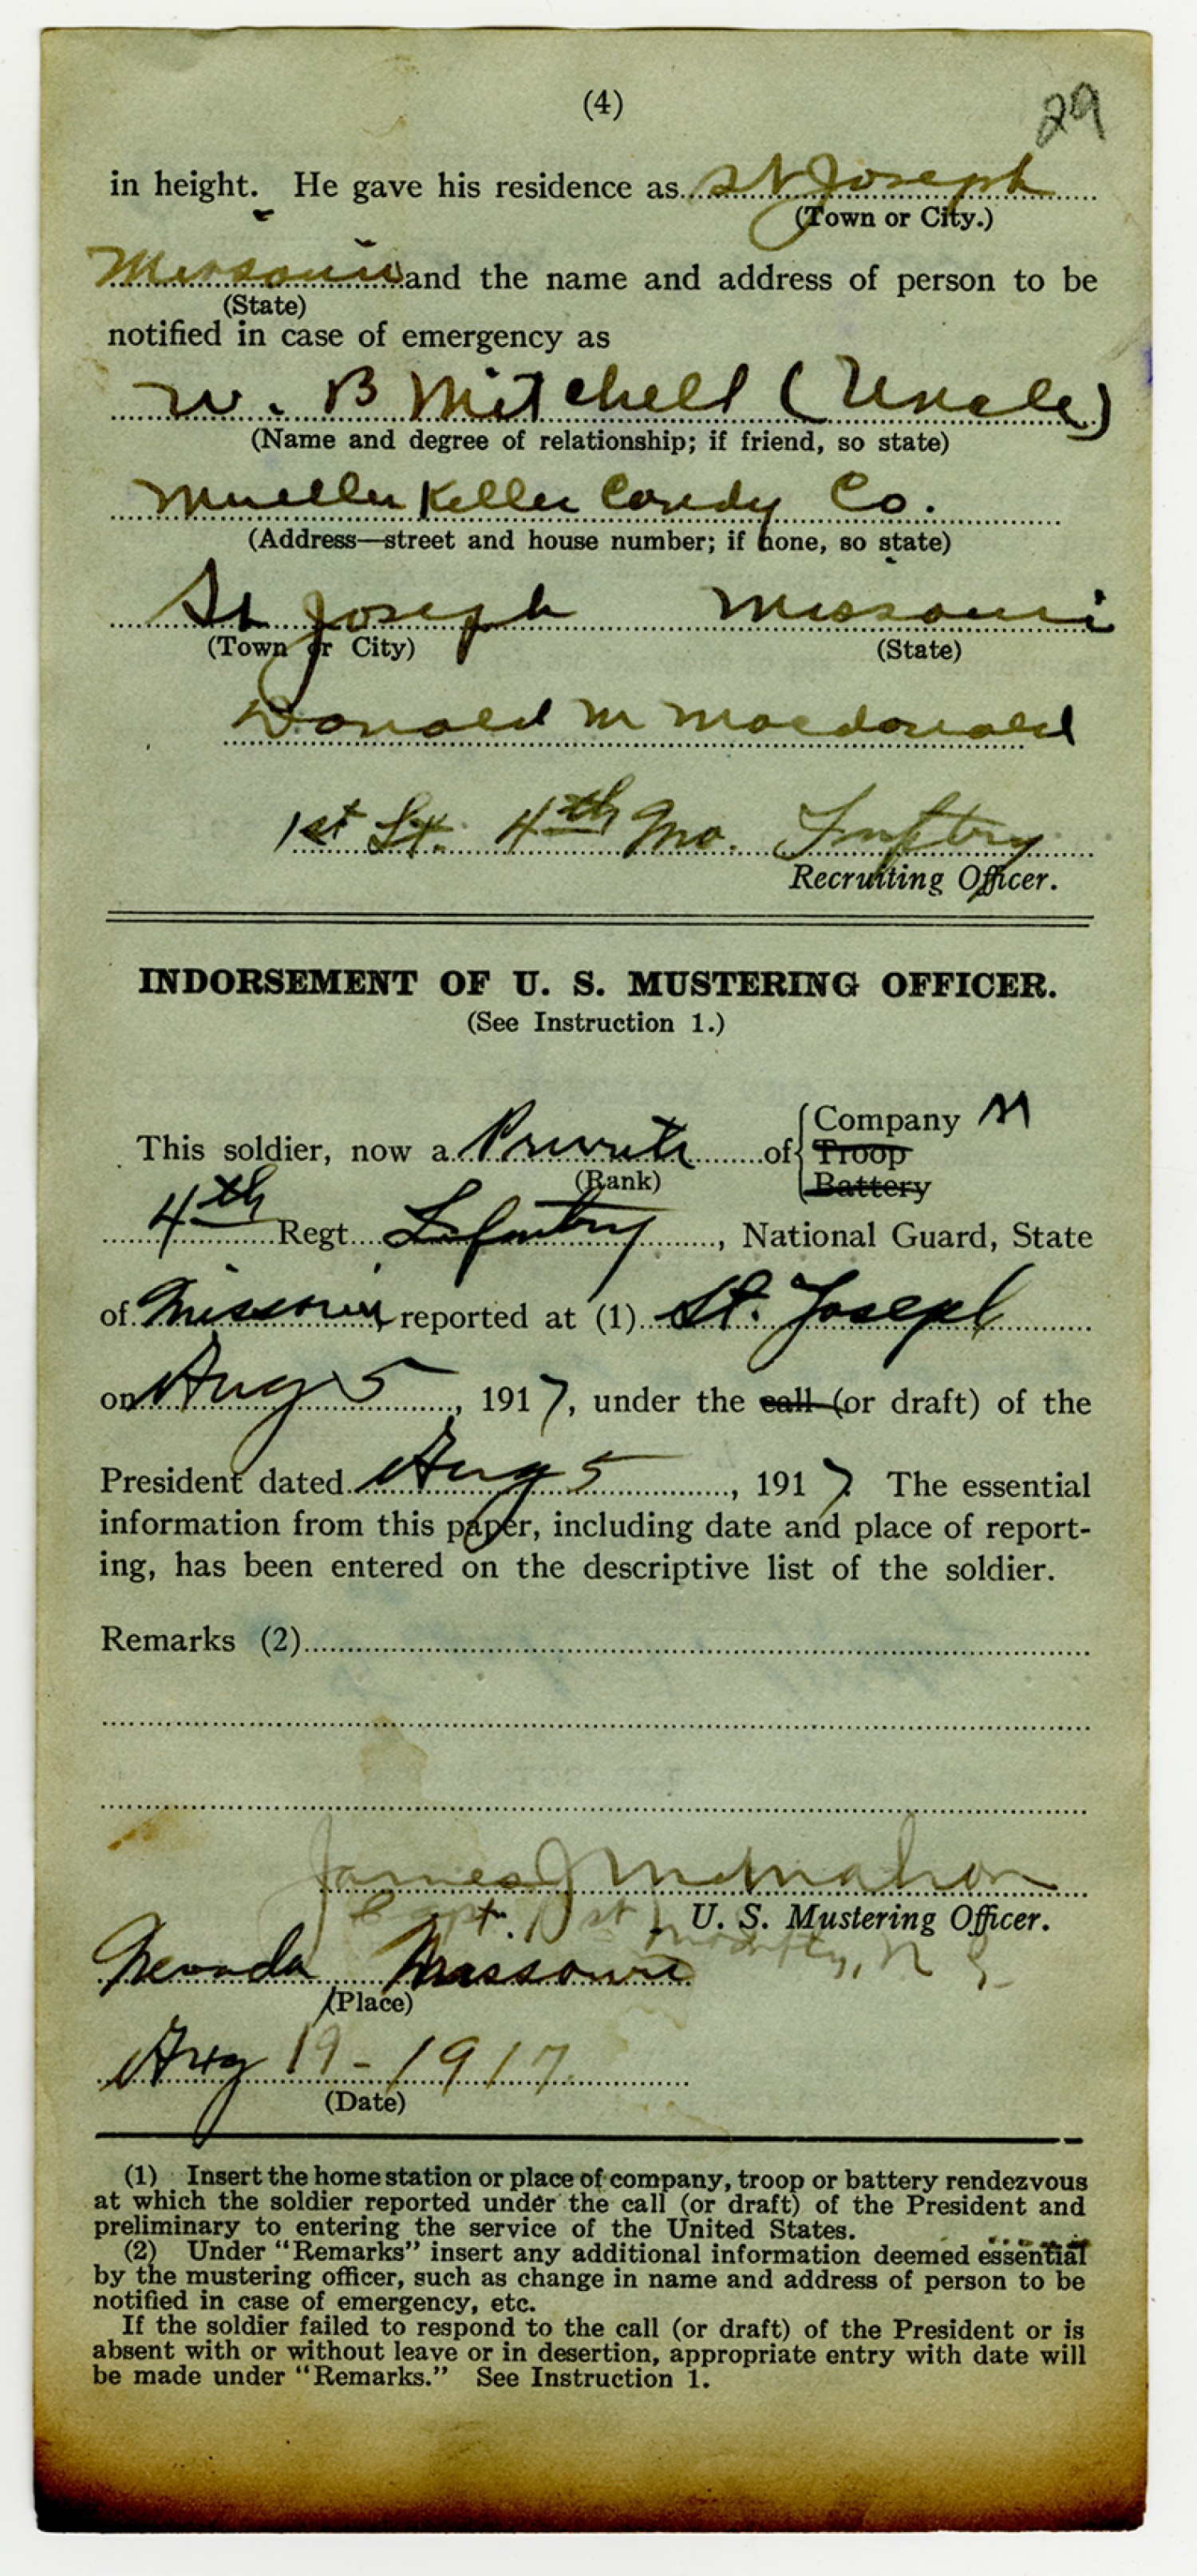 (4)
29
in height. He gave his residence as St Joseph
(Town or City.)
Missouri and the name and address of person to be
(State)
notified in case of emergency as
W. B Mitchell (Uncle)
(Name and degree of relationship; if friend, so state)
Mueller Keller Candy Co.
(Address—street and house number; if none, so state)
St Joseph Missouri
(Town or City) (State)
Donald M Macdonald
1st Lt. 4th Mo. Inftry
Recruiting Officer.
INDORSEMENT OF U. S. MUSTERING OFFICER.
(See Instruction 1.)
Company M
This soldier, now a Private of Troop
(Rank) Battery
4th Regt Infantry, National Guard, State
of Missouri reported at (1) St. Joseph
on Aug 5, 1917, under the call (or draft) of the
President dated Aug 5, 1917. The essential
information from this paper, including date and place of report-
ing, has been entered on the descriptive list of the soldier.
Remarks (2)
James J McMahon
Capt. 1st Mo Infty, N G.
U. S. Mustering Officer.
Nevada Missouri
(Place)
Aug 19-1917
(Date)
(1) Insert the home station or place of company, troop or battery rendezvous
at which the soldier reported under the call (or draft) of the President and
preliminary to entering the service of the United States.
(2) Under "Remarks" insert any additional information deemed essential
by the mustering officer, such as change in name and address of person to be
notified in case of emergency, etc.
If the soldier failed to respond to the call (or draft) of the President or is
absent with or without leave or in desertion, appropriate entry with date will
be made under "Remarks." See Instruction 1.